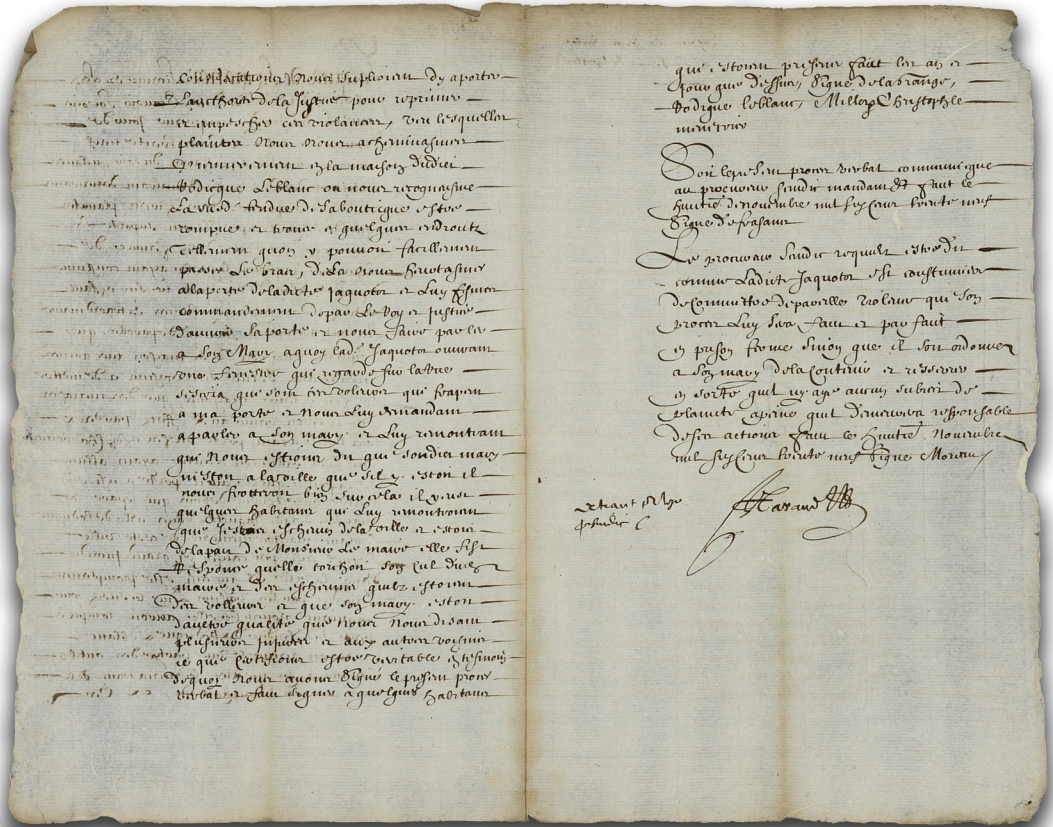 Nous suplioient dy aporter
Lauthorité de la Justice pour reprimer
et empescher ces viollances, veu lesquelles
plaintes nous nous acheminasmes
premierement en la maison dudict
Bodicque Leblanc ou nous recognusme
tendue de sa bouticque estre
rompue et trouee en quelques endroictz
Tellement quon y pouvoit facillement
passer le bras, de la nous heurtasmes
a la porte de ladicte Jaquotot et luy fismes
commandement de par Le Roy et justice
douvrir sa porte et nous faire parler
a son Mary a quoy lad. Jaquotot ouvrant
une fenestre qui regarde sur la rue
sescria que sont ces voleurs qui frapent
a ma porte et nous luy demandant
a parler a son mary et luy remontrant
que nous estions dit que son dict mary
nestoit a la ville que sil y estoit il
nous frotteroit bien sur cela il y eust
quelques habitans qui luy remontrerent
que jestois eschevin de la ville et estois
de la part de Monsieur Le maire elle fist
Responce quelle torchoit son cul du
maire et des eschevins quilz estoient
des volleurs et que son mary estoit
dautre qualité que nous nous disant
plusieurs injures et aux autres voisins
ce que certifions estre veritable en tesmoin
de quoy nous avons signé le present proces
verbal et faict signer a quelques habitans
que estoient present faict les an et
jour que dessus, Signé Delagrange,
Bodique Leblanc, Millot Christophle
menetrier
Soit le present proces verbal communicqué
au procureur scindic mandant &c faict le
huictie. de novembre mil six cens trente neuf
Signé defrasans
Le procureur scindic requiert estre dit
comme Ladicte Jaquotot est coustumiere
de commettre de pareille violence que son
proces luy sera faict et parfaict
en prison ferme sinon quil soit ordonné
a son mary de la contenir et resserrer
en sorte quil ny aye aucun subiect de
plaincte a peine quil demeurera responsable
de ses actions faict le huictie. Novembre
mil six cens trente neuf Signé Moreau